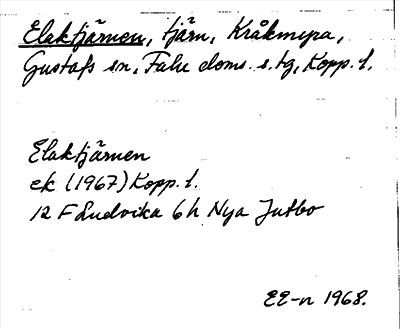 Elaktjärnen, tjärn, Kråkmyra,
Gustafs sn, Falu doms. s. tg, Kopp. l.
Elaktjärnen
ek (1967) Kopp. l.
12 F Ludvika 6 h Nya Jutbo
EE-n 1968.